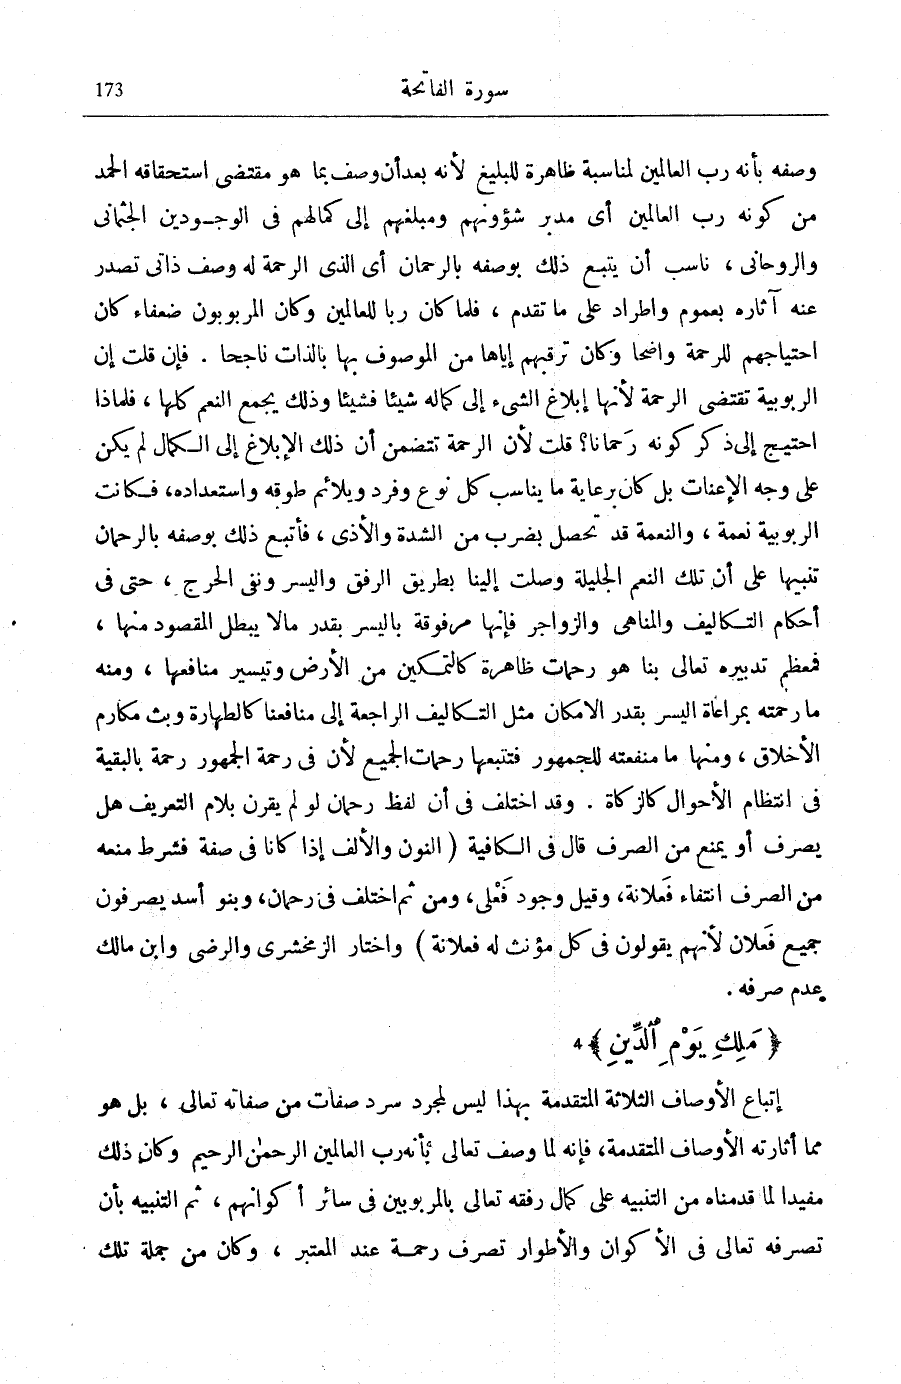 سورة الفاتحة 173
وصفه بأنه رب العالمين لمناسبة ظاهرة للبليغ لأنه بعد أن وصف بما هو مقتضى استحقاقه الحمد
من كونه رب العالمين أى مدبر شؤونهم ومبلغهم إلى كمالهم فى الوجودين الجثمانى
والروحانى ، ناسب أن يتبع ذلك بوصفه بالرحمان أى الذى الرحمة له وصف ذاتى تصدر
عنه آثاره بعموم واطراد على ما تقدم ، فلما كان ربا للعالمين وكان المربوبون ضعفاء كان
احتياجهم للرحمة واضحا وكان ترقبهم إياها من الموصوف بها بالذات ناجحا . فإن قلت إن
الربوبية تقتضى الرحمة لأنها إبلاغ الشىء إلى كماله شيئا فشيئا وذلك يجمع النعم كلها ، فلماذا
احتيج إلى ذكر كونه رَحمانا؟ قلت لأن الرحمة تتضمن أن ذلك الإبلاغ إلى الكمال لم يكن
على وجه الإعنات بل كان برعاية ما يناسب كل نوع وفرد ويلائم طوقه واستعداده، فكانت
الربوبية نعمة ، والنعمة قد تحصل بضرب من الشدة والأذى ، فأتبع ذلك بوصفه بالرحمان
تنبيها على أن تلك النعم الجليلة وصلت إلينا بطريق الرفق واليسر ونفى الحرج ، حتى فى
أحكام التكاليف والمناهى والزواجر فإنها مرفوقة باليسر بقدر مالا يبطل المقصود منها ،
فمعظم تدبيره تعالى بنا هو رحمات ظاهرة كالتمكين من الأرض وتيسير منافعها ، ومنه
ما رحمته بمراعاة اليسر بقدر الامكان مثل التكاليف الراجعة إلى منافعنا كالطهارة وبث مكارم
الأخلاق ، ومنها ما منفعته للجمهور فتتبعها رحمات الجميع لأن فى رحمة الجمهور رحمة بالبقية
فى انتظام الأحوال كالزكاة . وقد اختلف فى أن لفظ رحمان لو لم يقرن بلام التعريف هل
يصرف أو يمنع من الصرف قال فى الكافية ( النون والألف إذا كانا فى صفة فشرط منعه
من الصرف انتفاء فَعلانة، وقيل وجود فَعْلى، ومن ثم اختلف فى رحمان، وبنو أسد يصرفون
جميع فَعلان لأنهم يقولون فى كل مؤنث له فعلانة ) واختار الزمخشرى والرضى وابن مالك
عدم صرفه .
﴿ مَلِكِ يَوْمِ ٱلدِّينِ ﴾ 4
إتباع الأوصاف الثلاثة المتقدمة بهذا ليس لمجرد سرد صفات من صفاته تعالى ، بل هو
مما أثارته الأوصاف المتقدمة، فإنه لما وصف تعالى بأنه رب العالمين الرحمٰن الرحيم وكان ذلك
مفيدا لما قدمناه من التنبيه على كمال رفقه تعالى بالمربوبين فى سائر أكوانهم ، ثم التنبيه بأن
تصرفه تعالى فى الأكوان والأطوار تصرف رحمة عند المعتبر ، وكان من جملة تلك